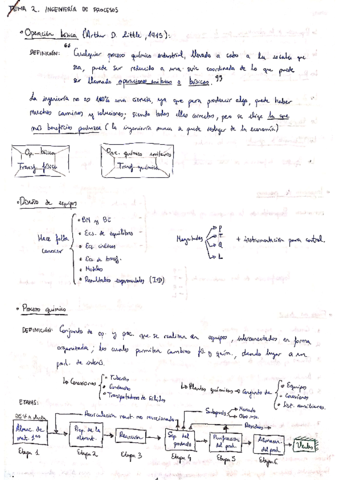 TEMA 2. INGENIERÍA DE PROCESOS
• Operación básica (Arthur D. Little, 1915):
DEFINICIÓN: "Cualquier proceso químico industrial, llevado a cabo a la escala que
sea, puede ser reducido a una serie coordinada de lo que puede
ser llamado operaciones unitarias o básicas."
La ingeniería no es 100% una ciencia, ya que para producir algo, puede haber
muchos caminos y soluciones, siendo todos ellos correctos, pero se elige la que
más beneficio produzca (la ingeniería nunca se puede desligar de la economía)
Op. básica
Transf. física
Transf. química
• Diseño de equipos
Hace falta conocer
• BM y BE
• Ecs. de equilibrio
• Ec. cinéticas
• Ecs de transf.
• Modelos
• Resultados experimentales (I+D)
Magnitudes
P
T
Q
L
+ instrumentación para control.
• Proceso químico
DEFINICIÓN: Conjunto de op. y que se realizan en equipos, interconectados en forma
organizada; los cuales permiten cambios fís y quím, dando lugar a un
prod. de interés.
Conexiones
• Tuberías
• Conductos
• Transportadores de sólidos
Plantas químicas → Conjunto de
• Equipos
• Conexiones
• Sist. auxiliares
ETAPAS:
Recirculación react. no reaccionados
Subprod.
Residuos
Almac. de mat. 1ªs
Prep. de la aliment.
Reacción
Sep. del producto
Purificación del prod.
Almacen. del prod.
Ventas
Etapa 1
Etapa 2
Etapa 3
Etapa 4
Etapa 5
Etapa 6